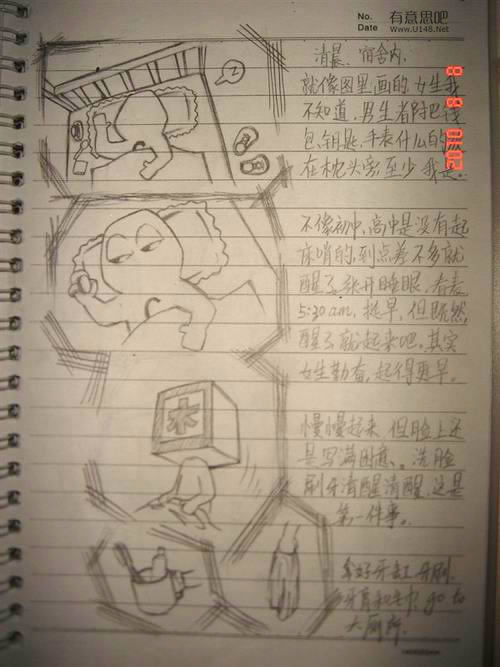 No.
Date
有意思吧
www.U148.Net
清晨、宿舍内.
就像图里画的,女生我
不知道,男生省时把钱
包、钥匙、手表什么的放
在枕头旁,至少我是。
不像初中,高中是没有起
床哨的,到点差不多就
醒了,张开睡眼,看表
5:30 am, 挺早,但既然
醒了就起来吧。其实
女生勤奋,起得更早。
慢慢起来,但脸上还
是写满困意、。洗脸
刷牙清醒清醒,这是
第一件事。
拿好牙缸、牙刷、
牙膏和毛巾, go to
大厕所.